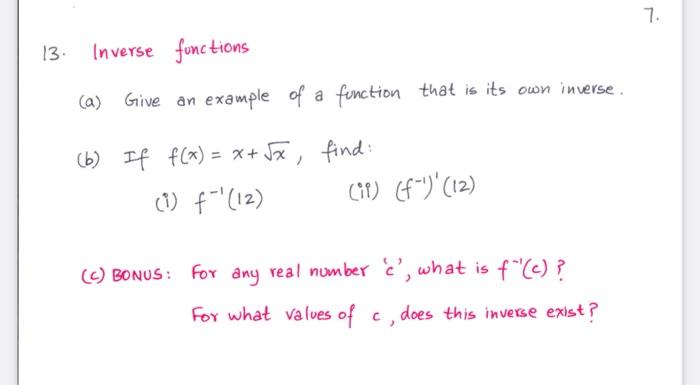 7.
13. Inverse functions
(a) Give an example of a function that is its own inverse.
(b) If f(x) = x + √x, find:
(i) f⁻¹(12) (ii) (f⁻¹)'(12)
(c) BONUS: For any real number 'c', what is f⁻¹(c)?
For what values of c, does this inverse exist?